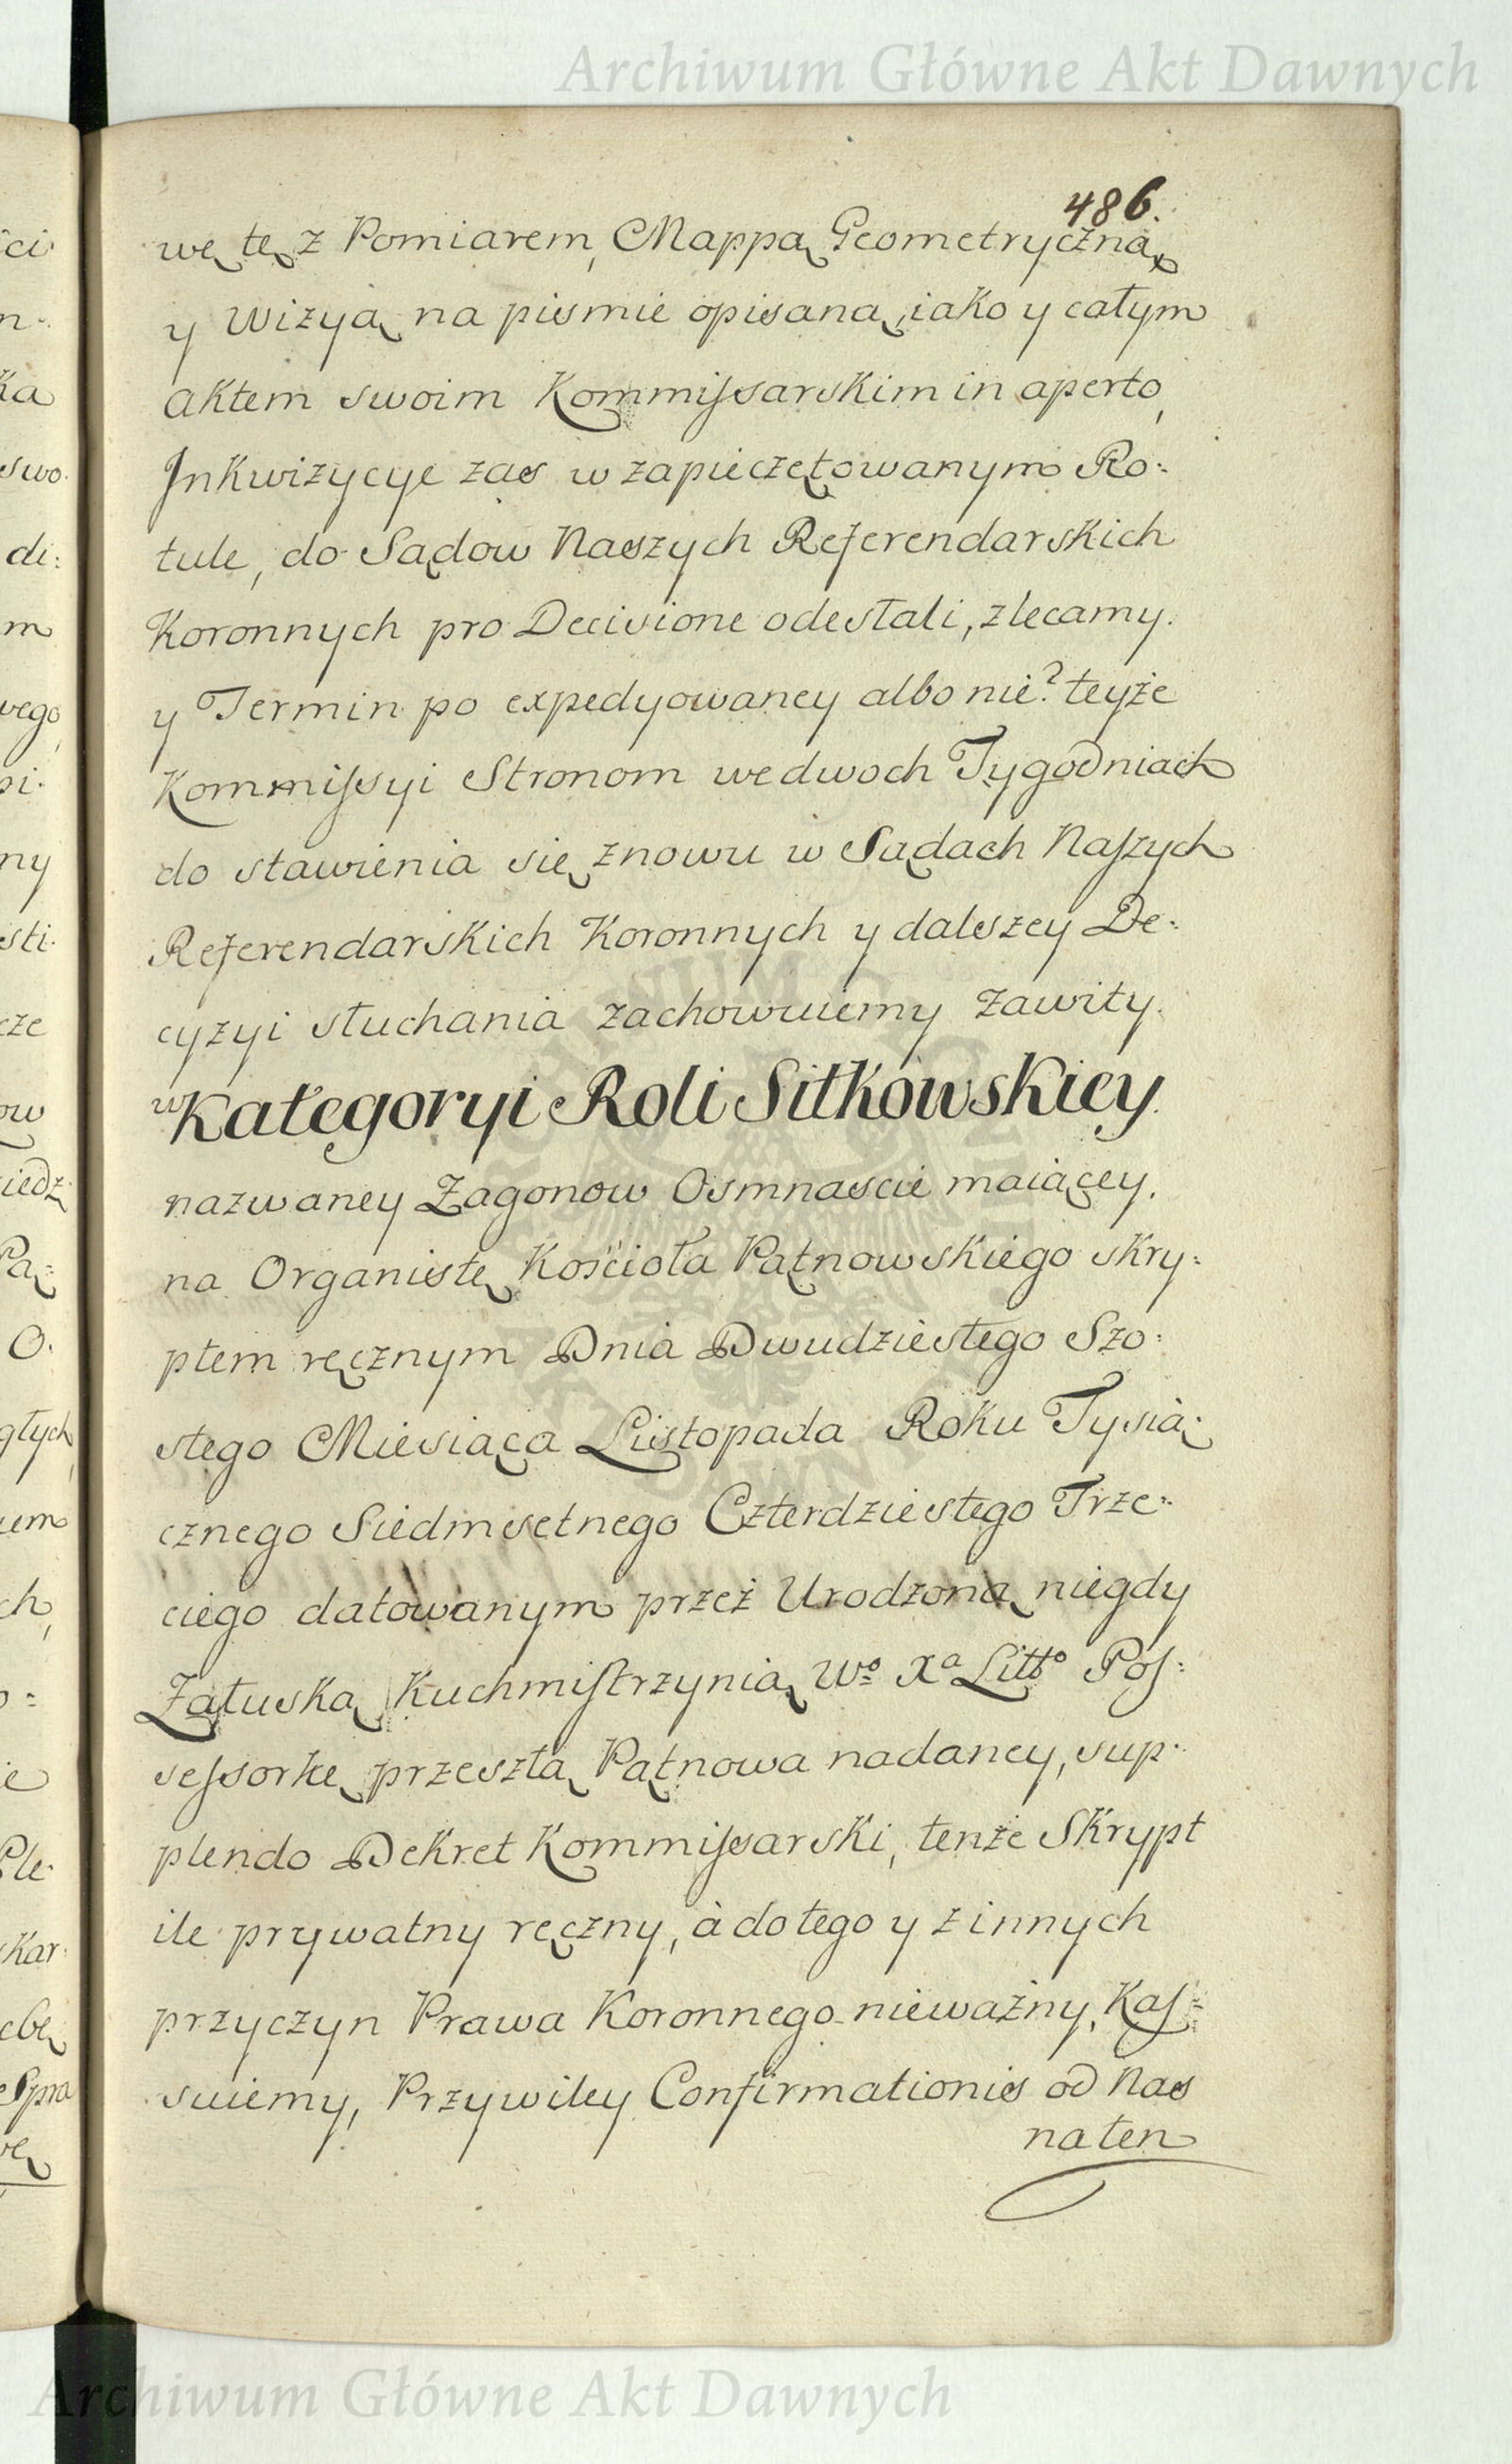 Archiwum Główne Akt Dawnych
486.
wę tę z Pomiarem, Mappą Geometryczną
y Wizyą na pismie opisaną, iako y całym
Aktem swoim Kommissarskim in aperto,
Inkwizycye zas w zapieczętowanym Ro:
tule, do Sądow Naszych Referendarskich
Koronnych pro Decisione odesłali, zlecamy.
y Termin po expedyowaney albo nie? teyże
Kommissyi Stronom we dwoch Tygodniach
do stawienia się znowu w Sądach Naszych
Referendarskich Koronnych y dalszey De:
cyzyi słuchania zachowuiemy zawity.
w Kategoryi Roli Sitkowskiey
nazwaney Zagonow Osmnascie maiącey,
na Organistę Kościoła Pątnowskiego skry:
ptem ręcznym Dnia Dwudziestego Szo:
stego Miesiąca Listopada Roku Tysią:
cznego Siedmsetnego Czterdziestego Trze:
ciego datowanym przez Urodzoną niegdy
Załuską Kuchmistrzynią Wo Xa Litto Pos:
sessorkę przeszłą Pątnowa nadaney, sup:
plendo Dekret Kommissarski, tenże Skrypt
ile prywatny ręczny, à do tego y z innych
przyczyn Prawa Koronnego nieważny, Kas:
suiemy, Przywiley Confirmationis od Nas
na ten
Archiwum Główne Akt Dawnych